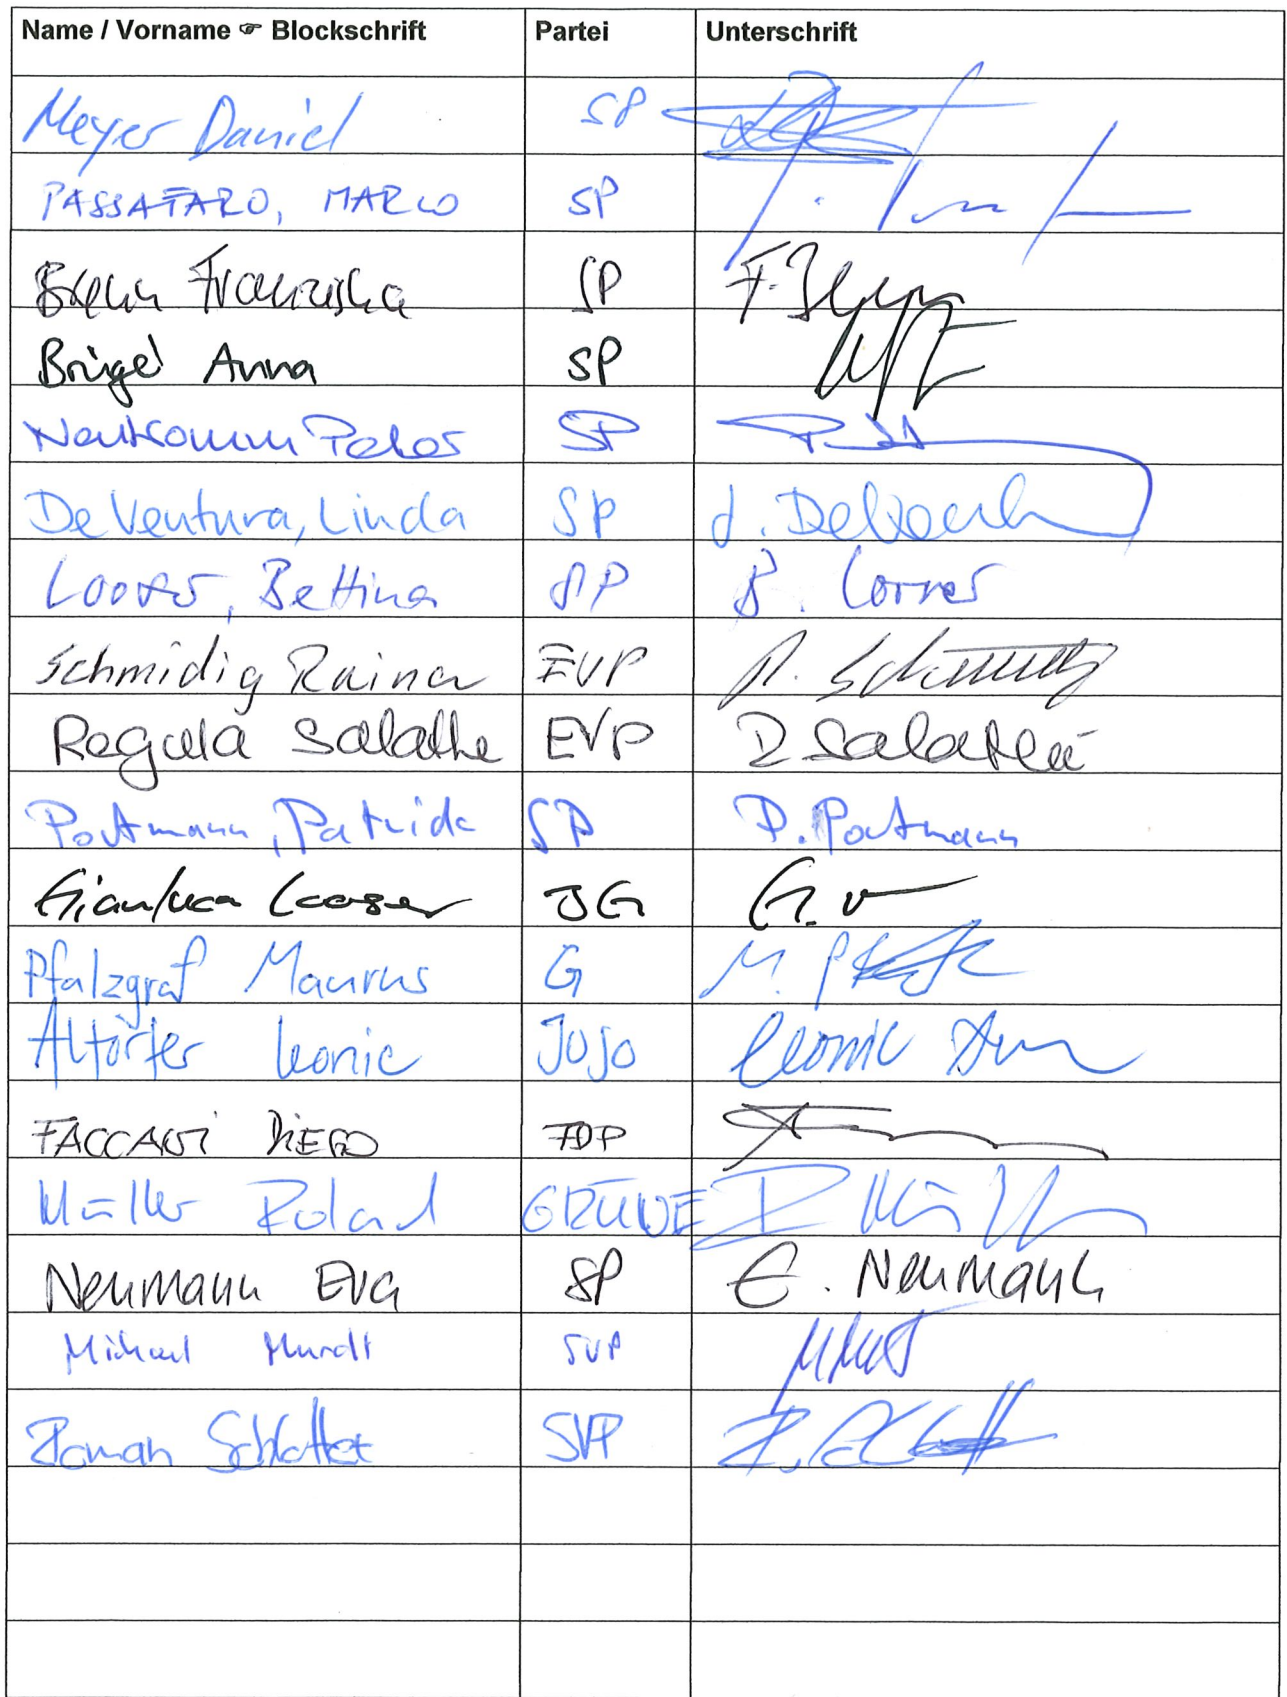 Name / Vorname ☞ Blockschrift Partei Unterschrift
Meyer Daniel SP
PASSAFARO, MARCO SP
Brenn Franziska SP F. Brenn
Brügel Anna SP
Neukomm Peter SP
De Ventura, Linda SP L. De Ventura
Looser, Bettina SP B. Looser
Schmidig Rainer EVP R. Schmidig
Regula Salathe EVP R Salathé
Portmann, Patrick SP P. Portmann
Gianluca Looser JG G.
Pfalzgraf Maurus G M.
Altorfer Leonie JUSO Leonie
FACCANI DIEGO FDP
Müller Roland GRÜNE R Müller
Neumann Eva SP E. Neumann
Michael Mundt SVP
Roman Schlatter SVP